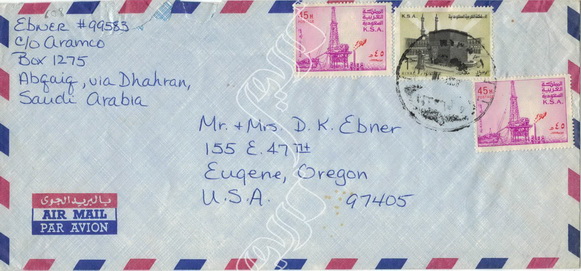 EBNER #99583
c/o Aramco
Box 1275
Abqaiq, via Dhahran,
Saudi Arabia
Mr. + Mrs. D. K. Ebner
155 E. 47TH
Eugene, Oregon
U.S.A. 97405
بالبريد الجوى
AIR MAIL
PAR AVION
المملكة
العربية
السعودية
K.S.A.
٤٥
K.S.A.
45
المملكة
العربية
السعودية
K.S.A.
٤٥